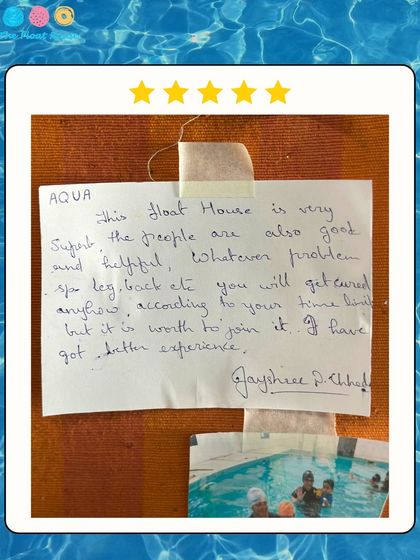 The Float House
AQUA
This Float House is very
Superb, the people are also good
and helpful, Whatever problem
sp. leg, back etc you will get cured
anyhow, according to your time limit
but it is worth to join it. I have
got better experience.
Jayshree D. Chheda